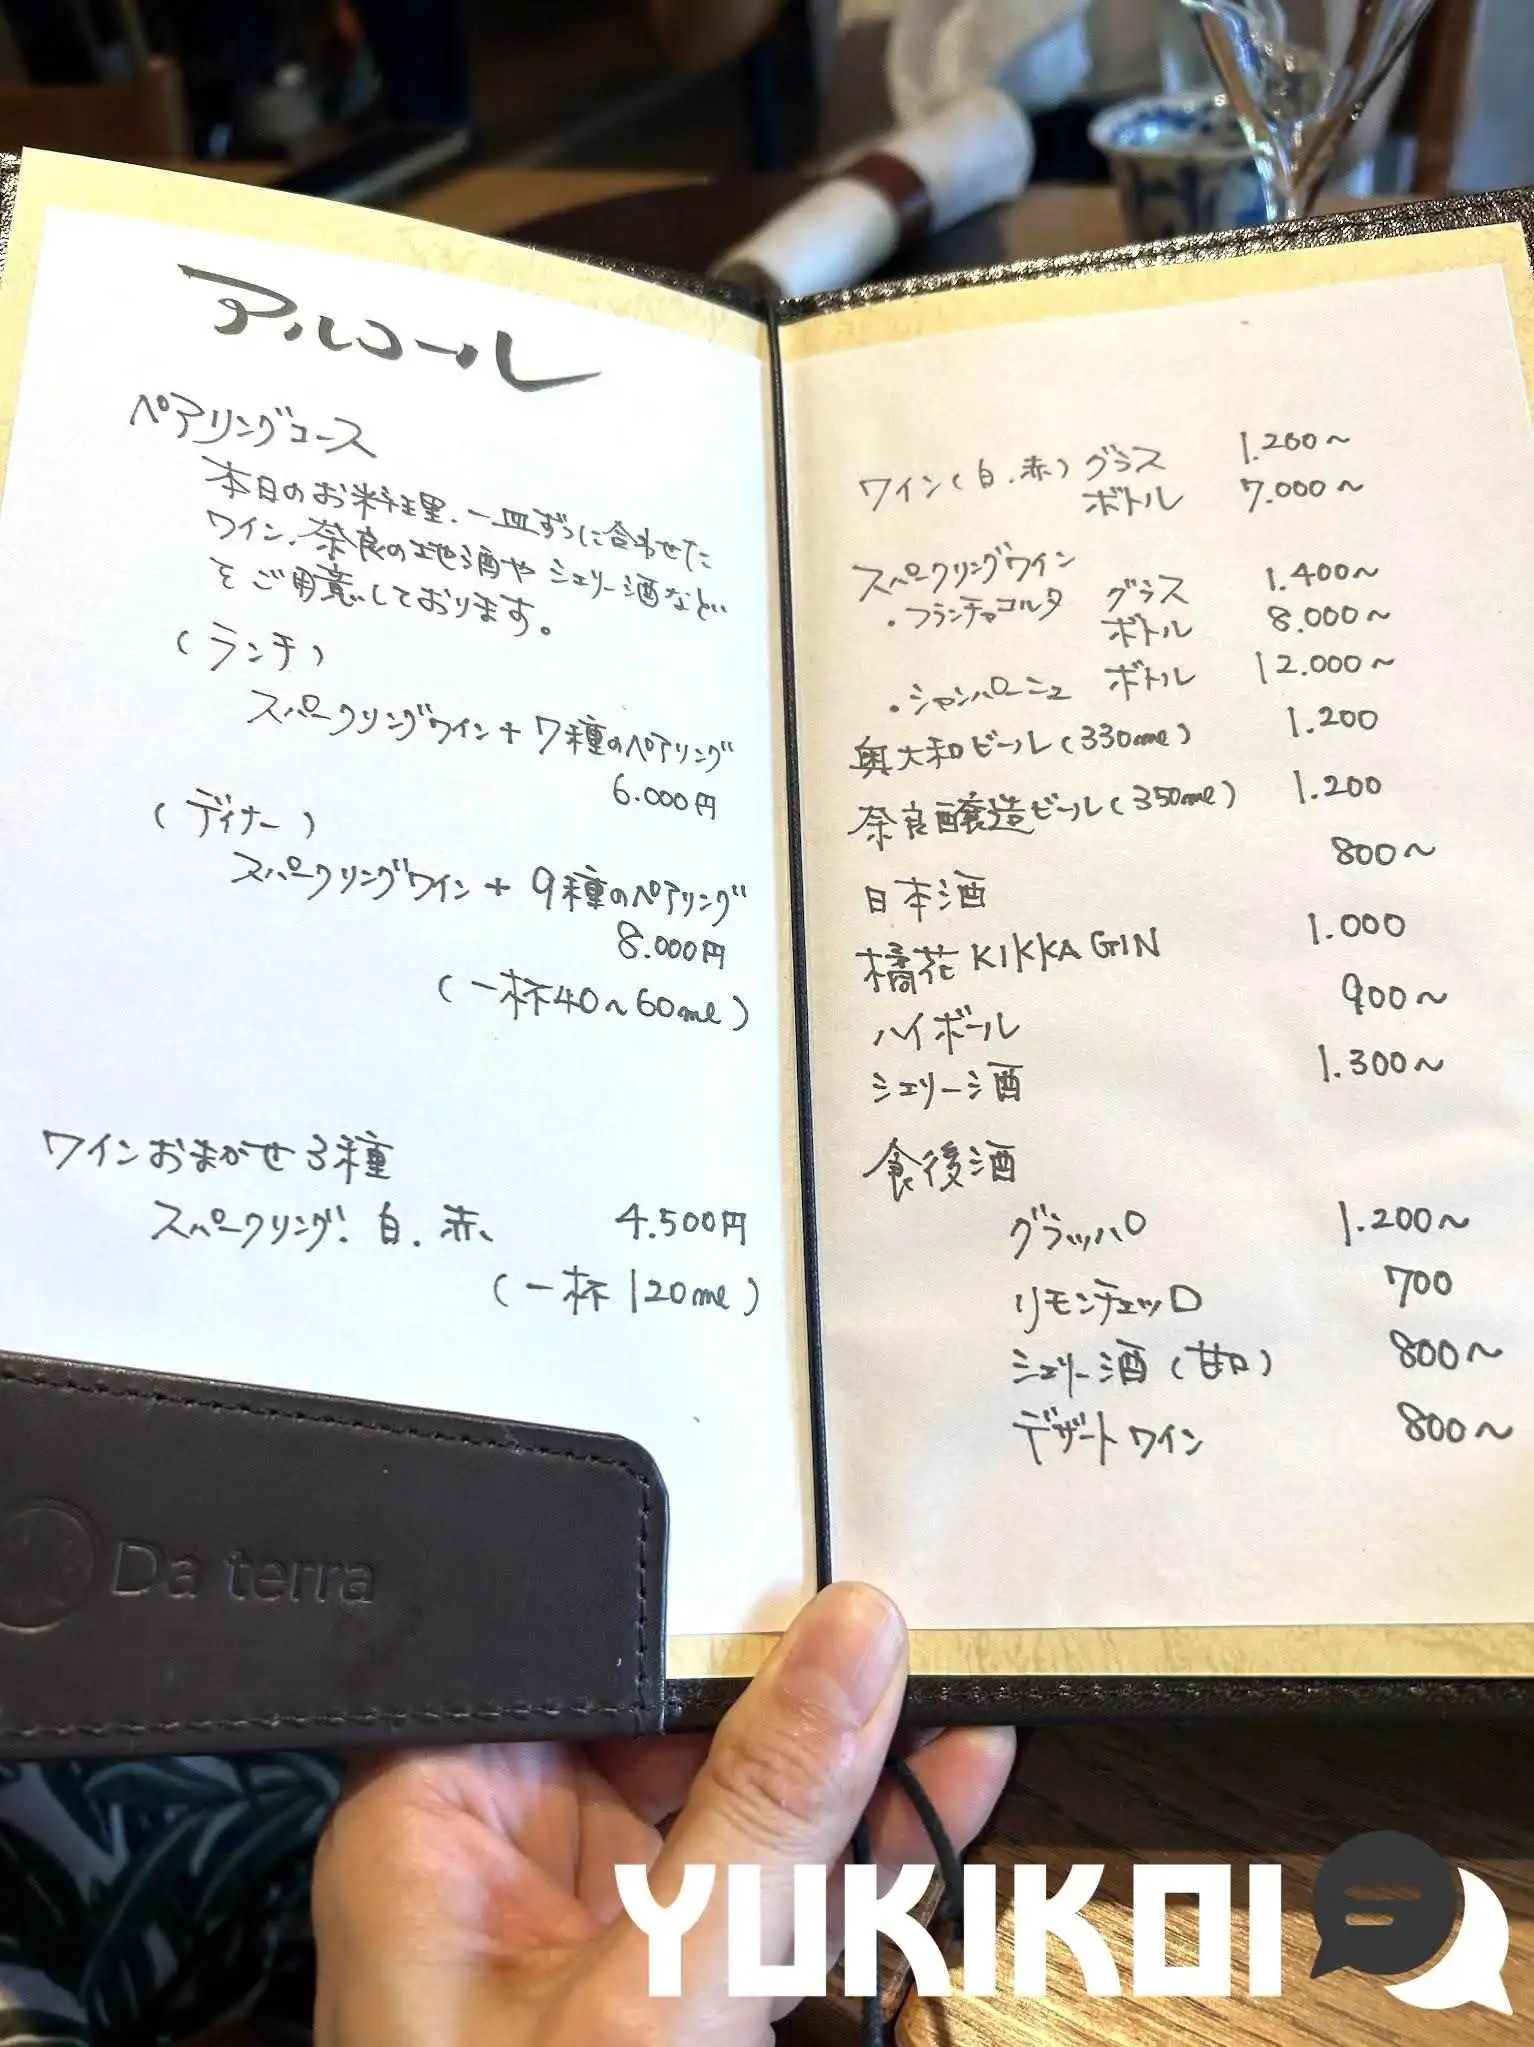 アルコール
ペアリングコース
本日のお料理、一皿ずつに合わせた
ワイン、奈良の地酒や シェリー酒など
をご用意しております。
(ランチ)
スパークリングワイン + 7種のペアリング
6.000円
(ディナー)
スパークリングワイン + 9種のペアリング
8.000円
(一杯40~60ml)
ワインおまかせ3種
スパークリング、白、赤、 4.500円
(一杯 120ml)
Da terra
ワイン(白、赤) グラス 1.200~
ボトル 7.000~
スパークリングワイン
・フランチャコルタ グラス 1.400~
ボトル 8.000~
・シャンパーニュ ボトル 12.000~
奥大和ビール(330ml) 1.200
奈良醸造ビール(350ml) 1.200
日本酒 800~
橘花 KIKKA GIN 1.000
ハイボール 900~
シェリー酒 1.300~
食後酒
グラッパ 1.200~
リモンチェッロ 700
シェリー酒(甘口) 800~
デザートワイン 800~
YUKIKOI